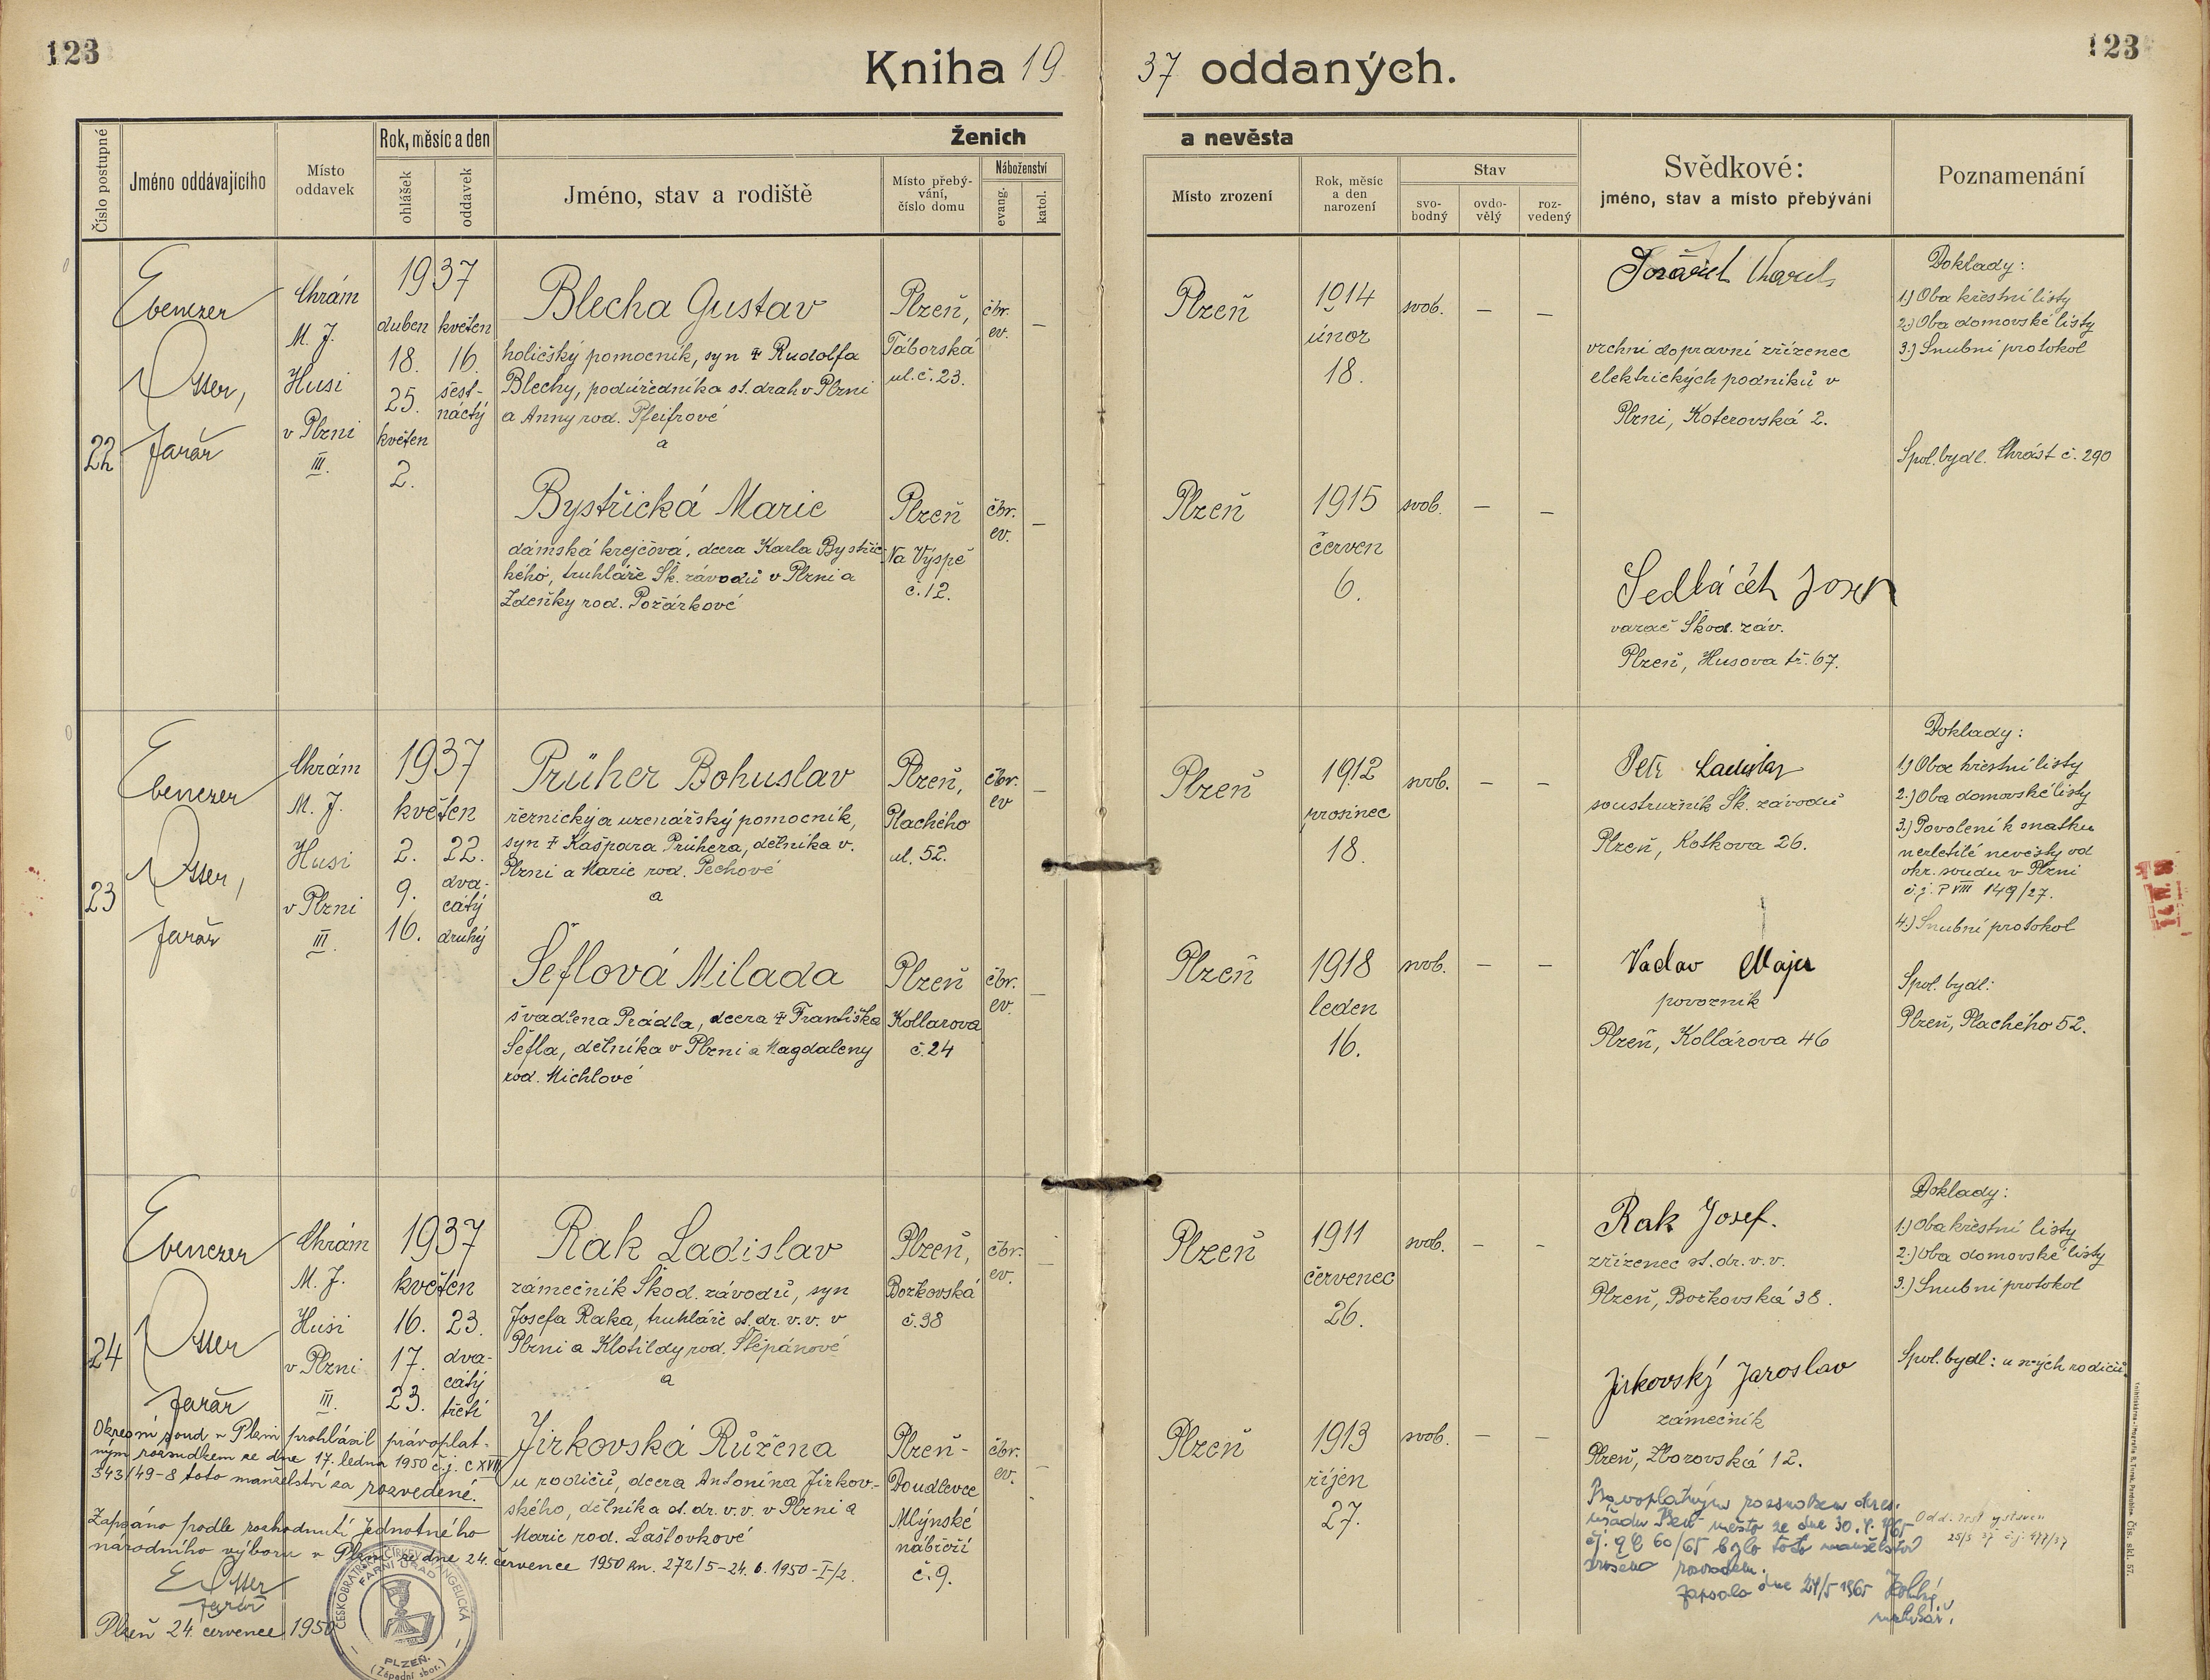 123
Kniha 19
37 oddaných.
123
Číslo postupné
Jméno oddávajícího
Místo
oddavek
Rok, měsíc a den
ohlášek
oddavek
Ženich
Jméno, stav a rodiště
Místo přebý-
vání,
číslo domu
Náboženství
evang.
katol.
a nevěsta
Místo zrození
Rok, měsíc
a den
narození
Stav
svo-
bodný
ovdo-
vělý
roz-
vedený
Svědkové:
jméno, stav a místo přebývání
Poznamenání
22
Ebenezer
Otter,
farář
Chrám
M. J.
Husi
v Plzni
III.
1937
duben
18.
25.
květen
2.
květen
16.
šest-
náctý
Blecha Gustav
holičský pomocník, syn † Rudolfa
Blechy, podúředníka st. drah v Plzni
a Anny roz. Pfeifrové
a
Plzeň,
Táborská
ul. č. 23.
čbr.
ev.
–
Plzeň
1914
únor
18.
svob.
–
–
Karel
vrchní dopravní zřízenec
elektrických podniků v
Plzni, Koterovská 2.
Doklady:
1.) Oba křestní listy
2.) Oba domovské listy
3.) Snubní protokol
Spol. bydl. Chrást č. 290
Bystřická Marie
dámská krejčová, dcera Karla Bystřic-
kého, truhláře Šk. závodů v Plzni a
Zdeňky roz. Požárkové
Plzeň
Na Výspě
č. 12.
čbr.
ev.
–
Plzeň
1915
červen
6.
svob.
–
–
Sedláček Josef
varač Škod. záv.
Plzeň, Husova tř. 67.
23
Ebenezer
Otter,
farář
Chrám
M. J.
Husi
v Plzni
III.
1937
květen
2.
9.
16.
22.
dva-
cátý
druhý
Průher Bohuslav
řeznický a uzenářský pomocník,
syn † Kašpara Průhera, dělníka v.
Plzni a Marie roz. Pechové
a
Plzeň,
Plachého
ul. 52.
čbr.
ev
–
Plzeň
1912
prosinec
18.
svob.
–
–
Petr Ladislav
soustružník Šk. závodů
Plzeň, Kotkova 26.
Doklady:
1.) Oba křestní listy
2.) Oba domovské listy
3.) Povolení k sňatku
nezletilé nevěsty od
okr. soudu v Plzni
č. j. P VIII 149/27.
4.) Snubní protokol
Šeflová Milada
švadlena Prádla, dcera † Františka
Šefla, dělníka v Plzni a Magdaleny
roz. Michlové
Plzeň
Kollarova
č. 24
čbr.
ev.
–
Plzeň
1918
leden
16.
svob.
–
–
Václav Majer
povozník
Plzeň, Kollárova 46
Spol. bydl:
Plzeň, Plachého 52.
24
Ebenezer
Otter
farář
Chrám
M. J.
Husi
v Plzni
III.
1937
květen
16.
17.
23.
23.
dva-
cátý
třetí
Rak Ladislav
zámečník Škod. závodů, syn
Josefa Raka, truhláře st. dr. v. v. v
Plzni a Klotildy roz. Štěpánové
a
Plzeň,
Božkovská
č. 38
čbr.
ev.
–
Plzeň
1911
červenec
26.
svob.
–
–
Rak Josef.
zřízenec st. dr. v. v.
Plzeň, Božkovská 38.
Doklady:
1.) Oba křestní listy
2.) Oba domovské listy
3.) Snubní protokol
Spol. bydl: u svých rodičů.
Jirkovská Růžena
u rodičů, dcera Antonína Jirkov-
ského, dělníka st. dr. v. v. v Plzni a
Marie roz. Lašťovkové
Plzeň-
Doudlevce
Mlýnské
nábřeží
č. 9.
čbr.
ev.
–
Plzeň
1913
říjen
27.
svob.
–
–
Jirkovský Jaroslav
zámečník
Plzeň, Zborovská 12.
Okresní soud v Plzni prohlásil právoplat-
ným rozsudkem ze dne 17. ledna 1950 č. j. C XVIII
343/49-8 toto manželství za rozvedené.
Zapsáno podle rozhodnutí Jednotného
národního výboru v Plzni ze dne 24. července 1950 zn. 272/5-24. 6. 1950-I/2.
E Otter
farář
Plzeň 24. července 1950
ČESKOBRATRSKÁ CÍRKEV EVANGELICKÁ
FARNÍ ÚŘAD
PLZEŇ.
(Západní sbor.)
Pravoplatným rozsudkem okres.
ze dne 30.
60/65 bylo toto manželství
zrušeno rozvodem.
zapsala dne 24/5 1965
Odd. list vystaven